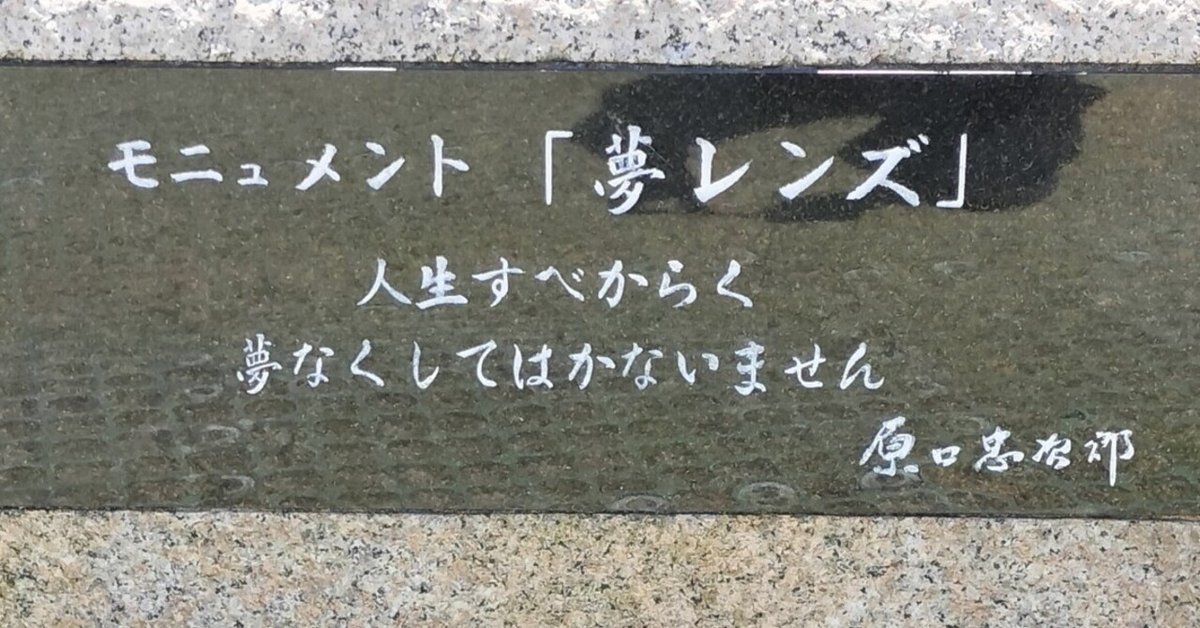 モニュメント「夢レンズ」
人生すべからく
夢なくしてはかないません
原口忠次郎